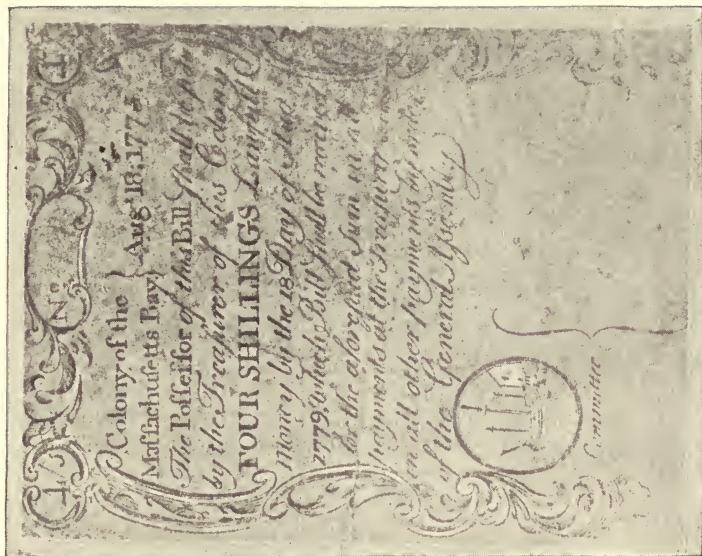 N.º
Colony of the } Aug.t 18. 1775
Maſsachuſetts Bay
The Poſſeſſor of this Bill ſhall be paid
by the Treaſurer of this Colony
FOUR SHILLINGS Lawfull
Money by the 18 Day of
1779. which Bill ſhall be received
for the aforeſaid Sum in all
Payments at the Treaſury
in all other Payments by order
of the General Aſſembly
Committee